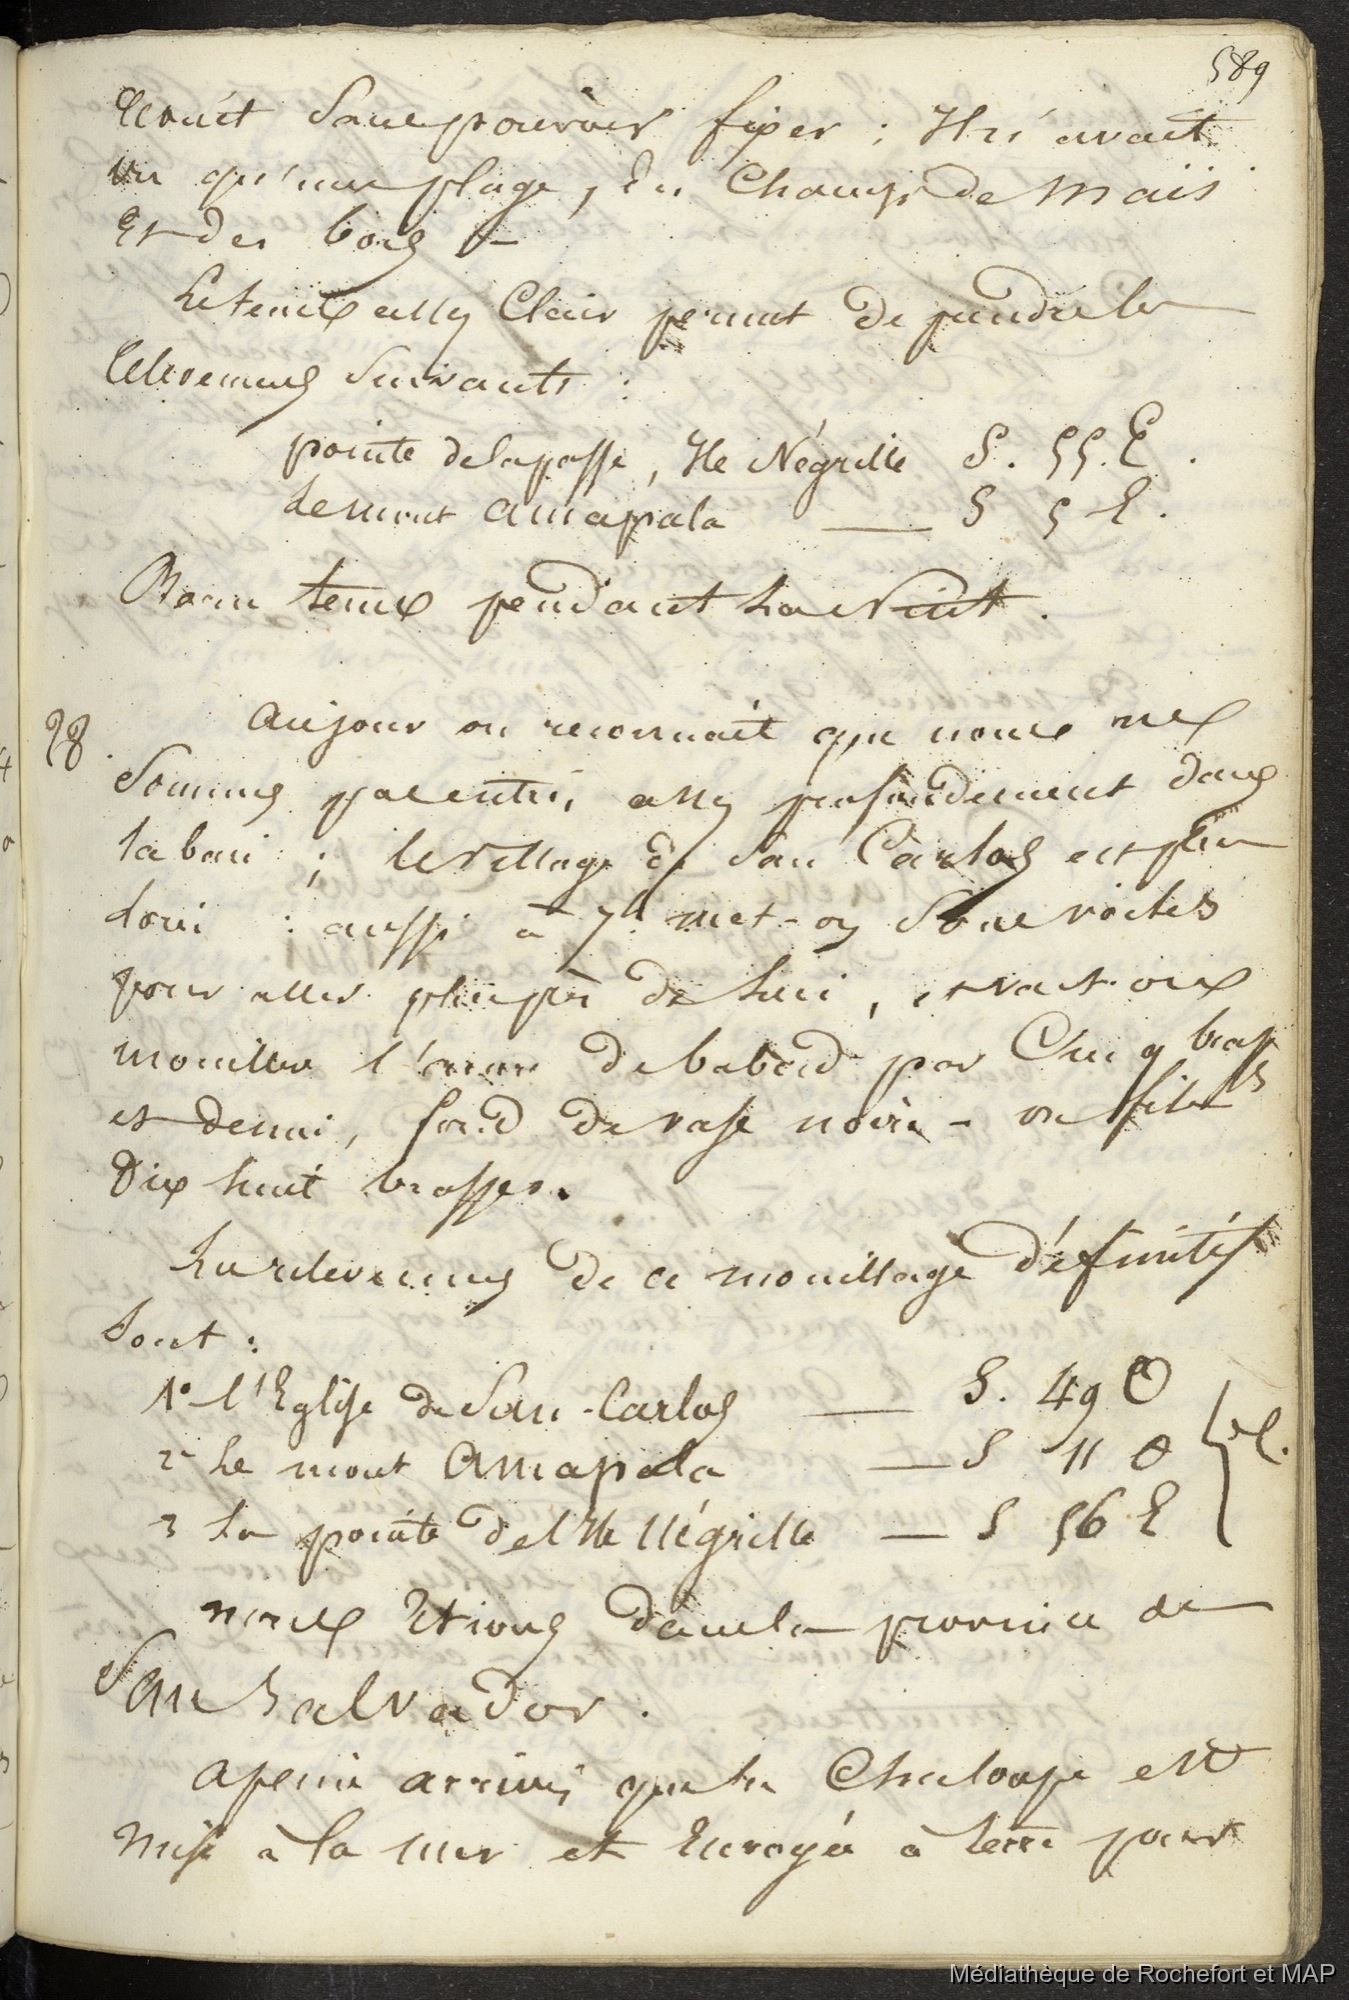 589
sans pouvoir fixer ; Il n'avait
vu qu'une plage, du Champ de Maïs
Et des bois –
Le temps assez Clair permet de prendre les
relevemens suivants :
pointe de la passe, Ile Négrille S. 55. E.
Le mont Amapala — S 5 E.
Beau temps pendant La Nuit.
28
Au jour on reconnait que nous ne
Sommes pas entrés assez profondement dans
la baie ; le village de San Carlos est plus
loin : aussi à 7h met-on Sous voiles
pour aller plus près de lui, et vat-on
mouiller l'ancre de babord par Cinq brasses
et demi, fond de vase noire – on file
Dix huit brasses.
Les relevemens de ce mouillage définitif
Sont :
1º l'Eglise de San-Carlos — S. 49 O
2º Le mont Amapala — S 11 O
3 La pointe de l'Ile Négrille — S 56 E
nous Etions dans la province de
San Salvador.
A peine arrivés que la Chaloupe est
mise à la mer et Envoyée à terre pour
Médiathèque de Rochefort et MAP